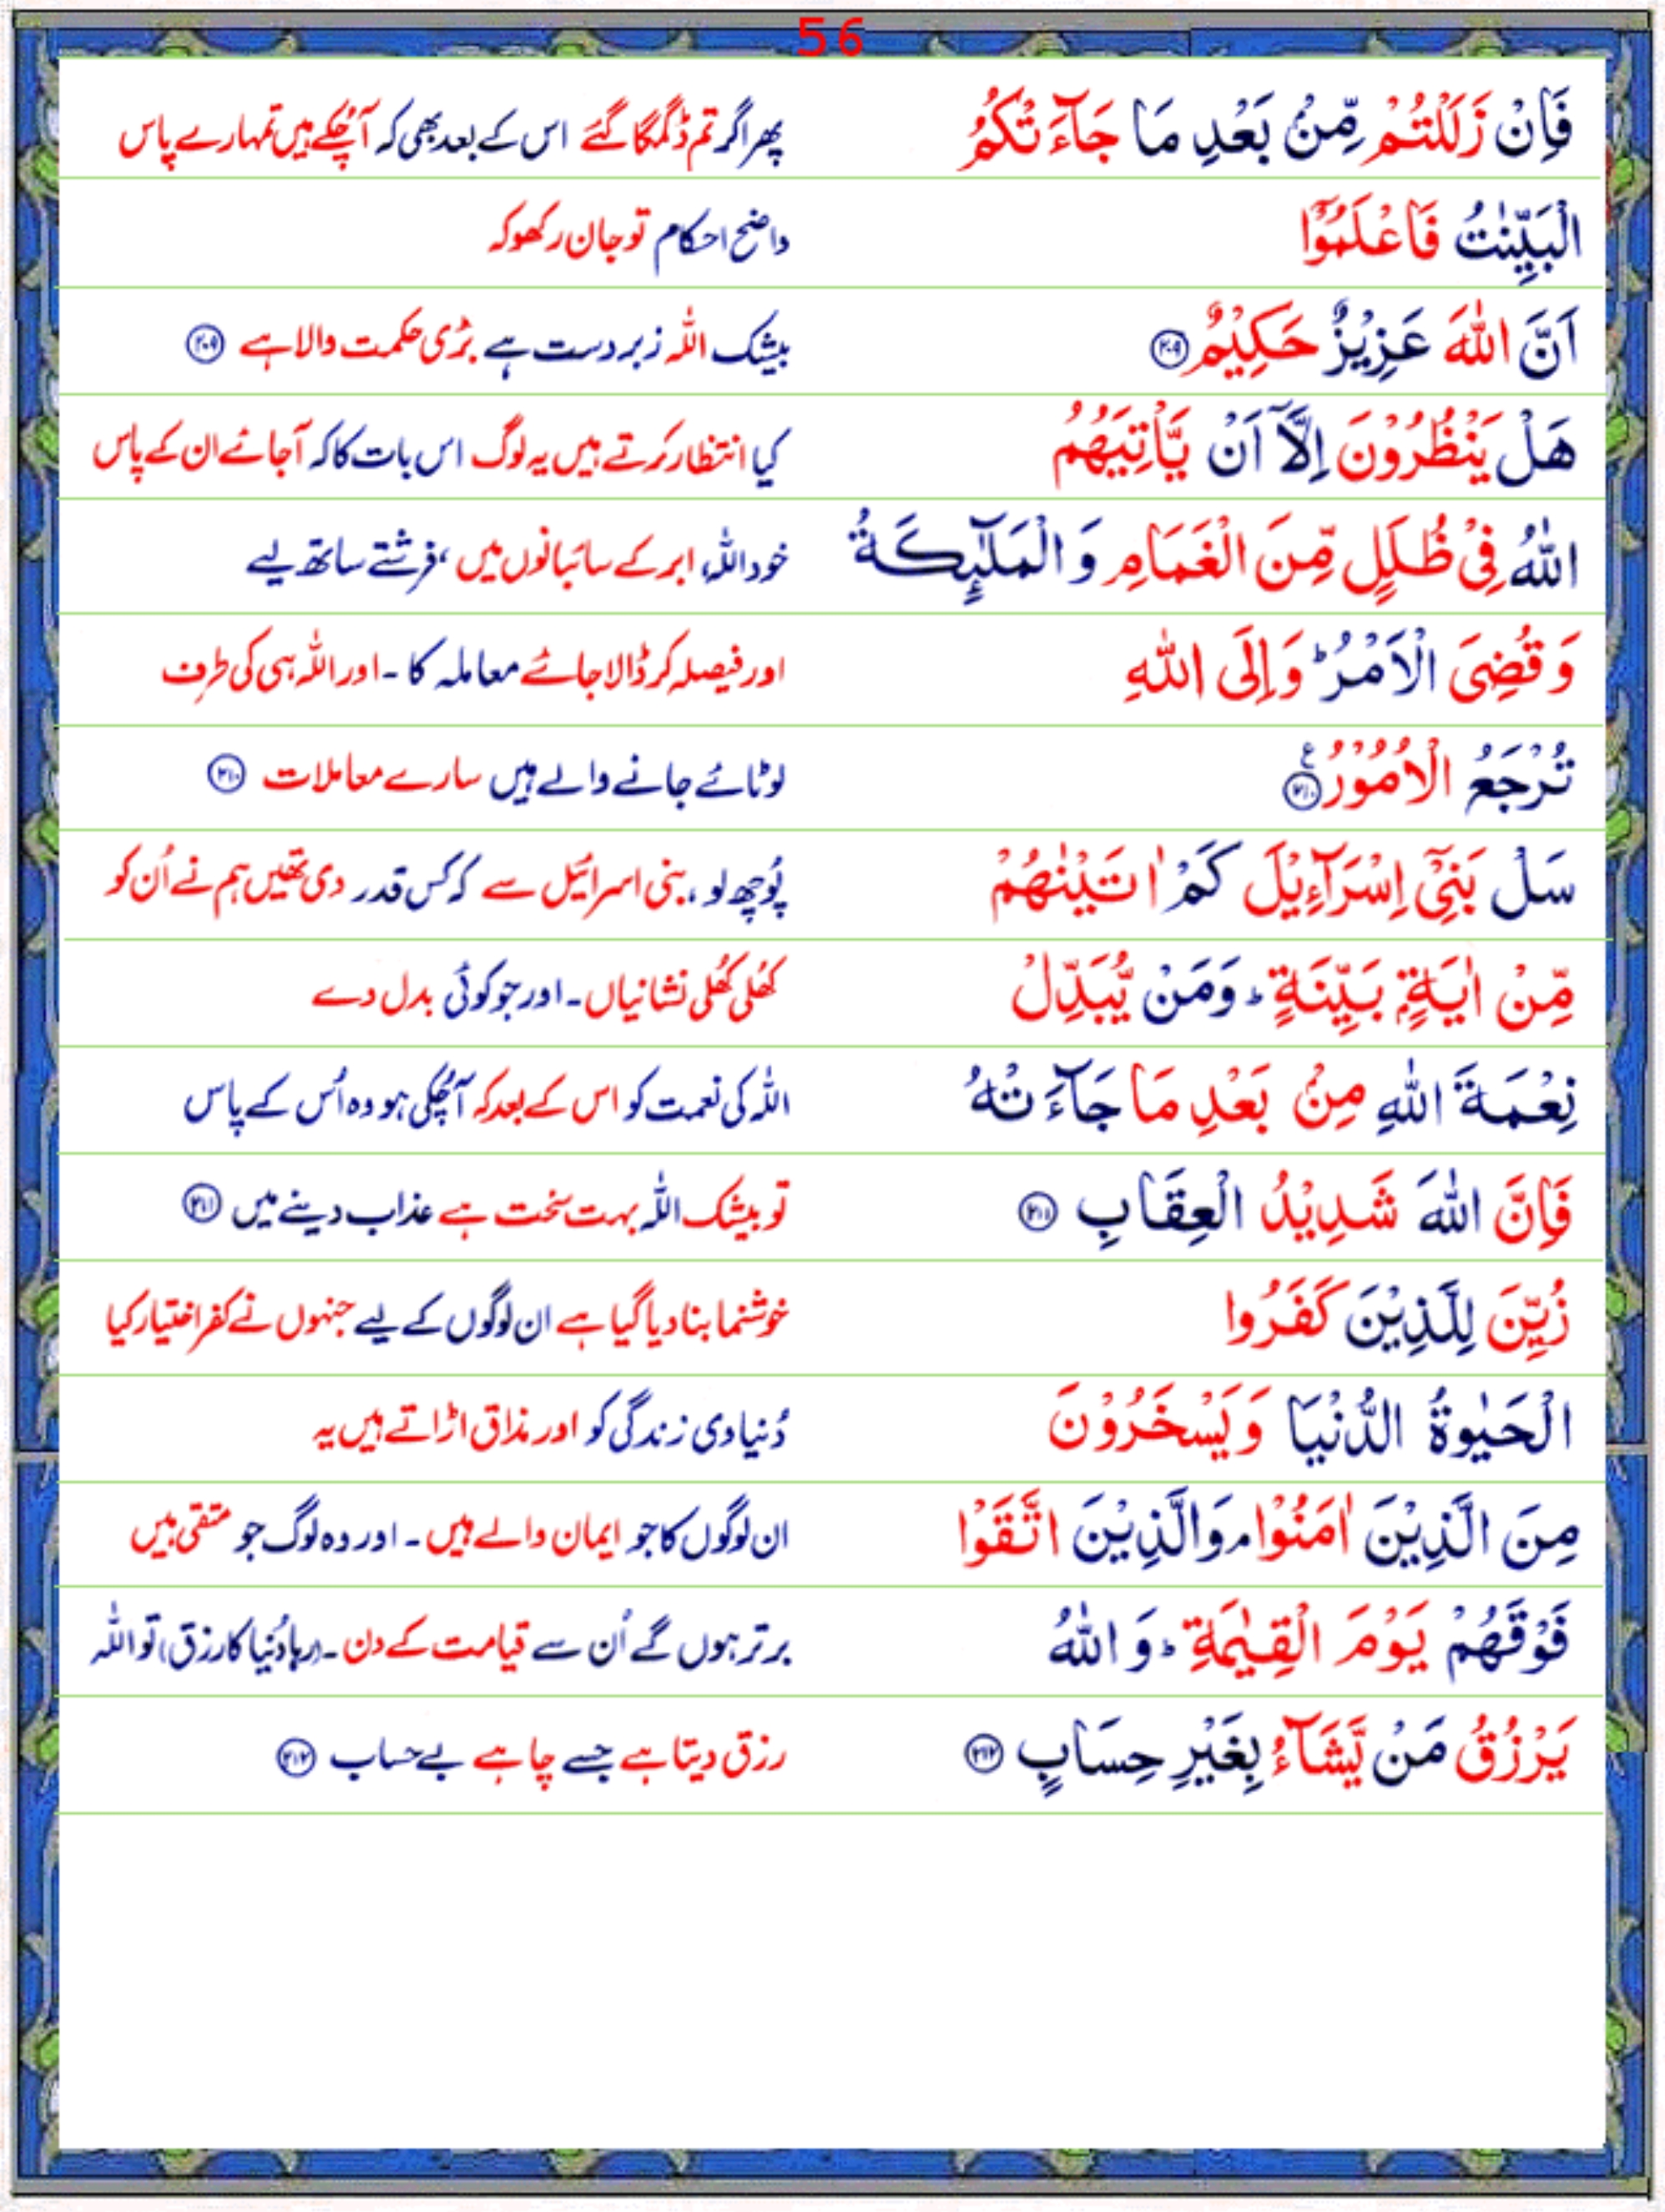 56
فَاِنْ زَلَلْتُمْ مِّنْۢ بَعْدِ مَا جَآءَتْكُمُ پھر اگر تم ڈگمگا گئے اس کے بعد بھی کہ آچُکے ہیں تمہارے پاس
الْبَيِّنٰتُ فَاعْلَمُوْٓا واضح احکام تو جان رکھو کہ
اَنَّ اللّٰهَ عَزِيْزٌ حَكِيْمٌ ﴿۲۰۹﴾ بیشک اللہ زبردست ہے بڑی حکمت والا ہے ﴿۲۰۹﴾
هَلْ يَنْظُرُوْنَ اِلَّآ اَنْ يَّاْتِيَهُمُ کیا انتظار کرتے ہیں یہ لوگ اس بات کا کہ آجائے ان کے پاس
اللّٰهُ فِيْ ظُلَلٍ مِّنَ الْغَمَامِ وَالْمَلٰٓىِٕكَةُ خود اللہ، ابر کے سائبانوں میں، فرشتے ساتھ لیے
وَقُضِيَ الْاَمْرُ ؕ وَاِلَى اللّٰهِ اور فیصلہ کر ڈالا جائے معاملہ کا ۔ اور اللہ ہی کی طرف
تُرْجَعُ الْاُمُوْرُ ﴿۲۱۰﴾ ع لوٹائے جانے والے ہیں سارے معاملات ﴿۲۱۰﴾
سَلْ بَنِيْٓ اِسْرَآءِيْلَ كَمْ اٰتَيْنٰهُمْ پُوچھ لو، بنی اسرائیل سے کہ کس قدر دی تھیں ہم نے اُن کو
مِّنْ اٰيَةٍۭ بَيِّنَةٍ ؕ وَمَنْ يُّبَدِّلْ کھُلی کھُلی نشانیاں ۔ اور جو کوئی بدل دے
نِعْمَةَ اللّٰهِ مِنْۢ بَعْدِ مَا جَآءَتْهُ اللہ کی نعمت کو اس کے بعد کہ آچُکی ہو وہ اُس کے پاس
فَاِنَّ اللّٰهَ شَدِيْدُ الْعِقَابِ ﴿۲۱۱﴾ تو بیشک اللہ بہت سخت ہے عذاب دینے میں ﴿۲۱۱﴾
زُيِّنَ لِلَّذِيْنَ كَفَرُوا خوشنما بنا دیا گیا ہے ان لوگوں کے لیے جنہوں نے کفر اختیار کیا
الْحَيٰوةُ الدُّنْيَا وَيَسْخَرُوْنَ دُنیاوی زندگی کو اور مذاق اڑاتے ہیں یہ
مِنَ الَّذِيْنَ اٰمَنُوْا ۘ وَالَّذِيْنَ اتَّقَوْا ان لوگوں کا جو ایمان والے ہیں ۔ اور وہ لوگ جو متقی ہیں
فَوْقَهُمْ يَوْمَ الْقِيٰمَةِ ؕ وَاللّٰهُ برتر ہوں گے اُن سے قیامت کے دن ۔ (رہا دُنیا کا رزق) تو اللہ
يَرْزُقُ مَنْ يَّشَآءُ بِغَيْرِ حِسَابٍ ﴿۲۱۲﴾ رزق دیتا ہے جسے چاہے بے حساب ﴿۲۱۲﴾